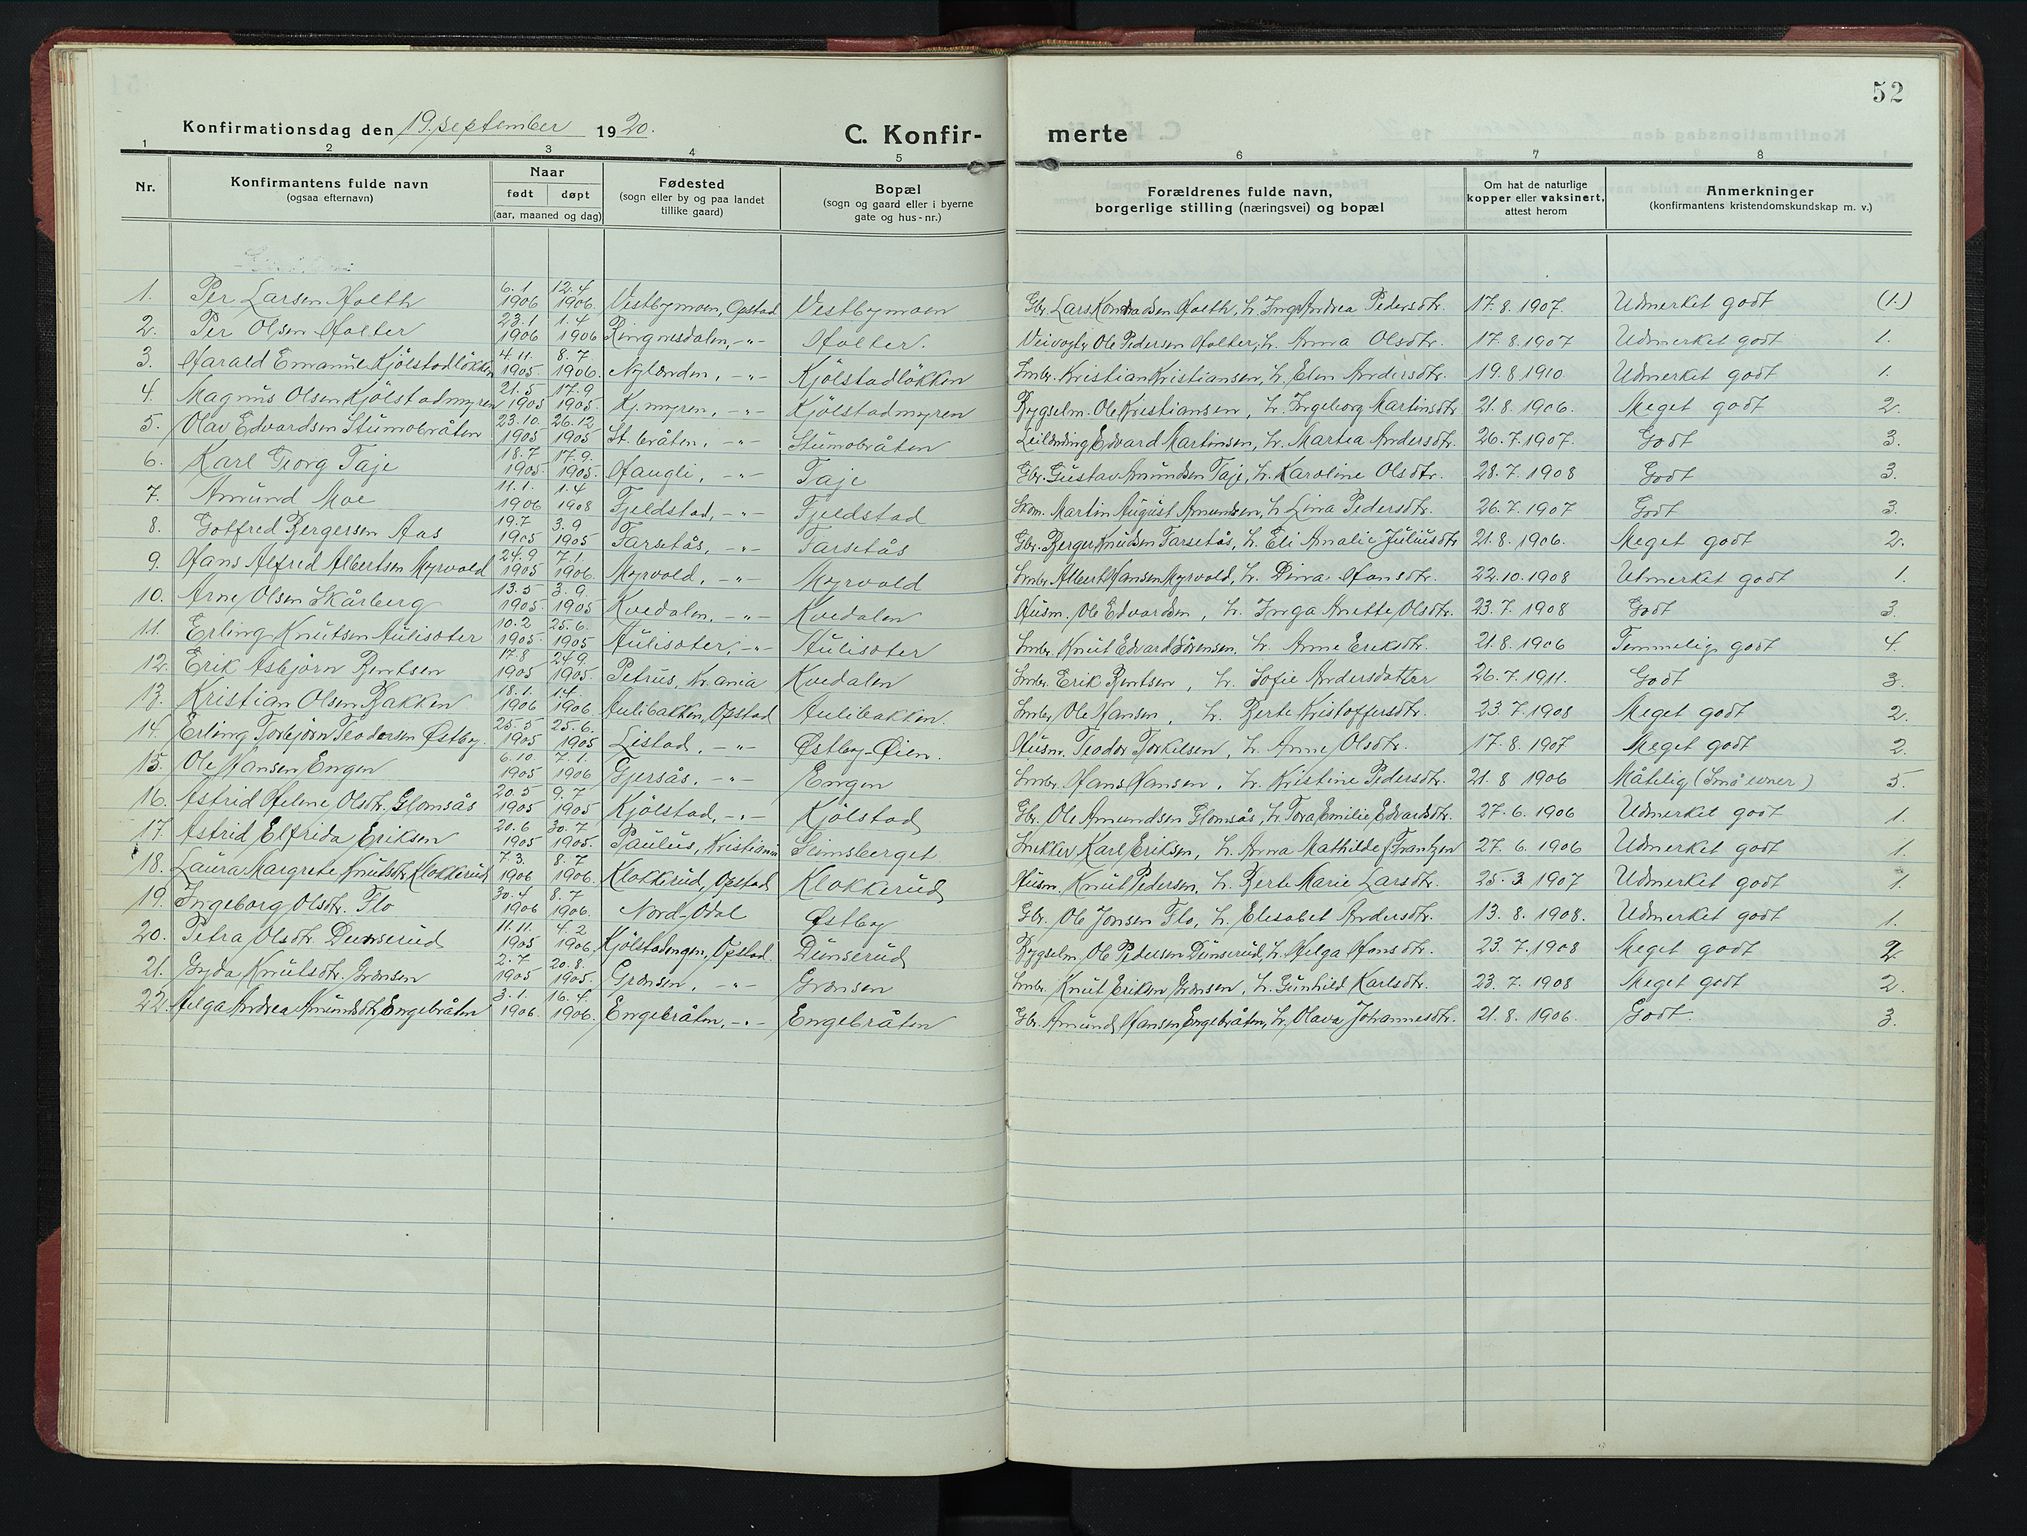 52
Konfirmationsdag den 19. september 1920.
C. Konfir-
merte
1 2 3 4 5 6 7 8
Nr. Konfirmantens fulde navn (ogsaa efternavn) Naar født døpt (aar, maaned og dag) Fødested (sogn eller by og paa landet tillike gaard) Bopæl (sogn og gaard eller i byerne gate og hus-nr.) Forældrenes fulde navn, borgerlige stilling (næringsvei) og bopæl Om hat de naturlige kopper eller vaksinert, attest herom Anmerkninger (konfirmantens kristendomskundskap m. v.)
1. Per Larsen Holth 6.1 1906 12.4 1906. Vestbymoen, Opstad Vestbymoen Gbr. Lars Konradsen Holth, h. Inga Andrea Pedersdtr. 17.8.1907. Udmerket godt (1.)
2. Per Olsen Holter 23.1 1906 1.4 1906 Ringnesdalen, -"- Holter. Veivogter Ole Pedersen Holter, h. Anna Olsdtr. 17.8.1907 Udmerket godt 1.
3. Harald Emanuel Kjölstadlökken 4.11. 1905 8.7 1906. Nylænden, -"- Kjölstadlökken Smbr. Kristian Kristiansen, h. Elen Andersdtr. 19.8.1910 Udmerket godt 1.
4. Magnus Olsen Kjölstadmyren 21.5 1905 17.9 1905. Kj.myren, -"- Kjölstadmyren Bygselm. Ole Kristiansen, h. Ingeborg Martinsdtr 21.8.1906. Meget godt 2.
5. Olav Edvardsen Stumobråten 23.10. 1905 26.12 1905 St.bråten, -"- Stumobråten Leilænding Edvard Martinsen, h. Martea Andersdtr. 26.7.1907. Godt 3.
6. Karl Georg Taje 18.7 1905 17.9. 1905. Haugli, -"- Taje Gbr. Gustav Amundsen Taje, h. Karoline Olsdtr. 28.7.1908 Godt 3.
7. Amund Moe 11.1. 1906 1.4 1908 Fjeldstad, -"- Fjeldstad Skom. Martin August Amundsen, h. Lina Pedersdtr. 26.7.1907 Godt 3.
8. Gotfred Bergersen Aas 19.7 1905 3.9 1905 Tarsetås, -"- Tarsetås Gbr. Berger Knudsen Tarsetås, h. Eli Amalie Juliusdtr 21.8.1906. Meget godt 2.
9. Hans Alfred Albertsen Myrvold 24.9 1905 7.1. 1906. Myrvold, -"- Myrvold Smbr. Albert Hansen Myrvold, h. Dina Hansdtr. 22.10.1908 Utmerket godt 1.
10. Arne Olsen Skårberg 13.5 1905 3.9. 1905 Kvedalen, -"- Kvedalen Husm. Ole Edvardsen, h. Inga Anette Olsdtr. 23.7.1908 Godt 3.
11. Erling Knutsen Aulisæter 10.2 1905. 25.6. 1905 Aulisæter, -"- Aulisæter Smbr. Knut Edvard Sörensen, h. Anne Eriksdtr. 21.8.1906 Temmelig godt 4.
12. Erik Asbjörn Berntsen 17.8 1905 24.9. 1905. Petrus, Kr.ania Kvedalen Smbr. Erik Berntsen, h. Sofie Andersdatter 26.7.1911. Godt 3.
13. Kristian Olsen Bakken 18.1. 1906 1.4. 1906 Aulibakken, Opstad Aulibakken. Smbr. Ole Hansen, h. Berte Kristoffersdtr. 23.7.1908 Meget godt 2.
14. Erling Torbjörn Teodorsen Østby. 25.5 1905 25.6. 1905 Listad, -"- Østby-Øien. Husm. Teodor Torkelsen, h. Anne Olsdtr. 17.8.1907 Meget godt 2.
15. Ole Hansen Engen 6.10. 1905 7.1. 1906 Gjersås, -"- Engen Smbr. Hans Hansen, h. Kristine Pedersdtr. 21.8 1906 Måtelig (Små evner) 5.
16. Astrid Helene Olsdtr. Glomsås 20.5 1905 9.7 1905 Kjölstad, -"- Kjölstad Gbr. Ole Amundsen Glomsås, h. Tora Emilie Edvardsdtr. 27.6.1906 Udmerket godt 1.
17. Astrid Elfrida Eriksen 20.6 1905 30.7 1905. Paulus, Kristiania Slimsberget. Snekker Karl Eriksen, h. Anna Mathilde Frantzen 27.6.1906 Udmerket godt 1.
18. Laura Margrete Knutsdtr. Klokkerud 7.3. 1906 8.7 1906. Klokkerud, Opstad Klokkerud Husm. Knut Pedersen, h. Berte Marie Larsdtr. 25.3 1907 Udmerket godt 1.
19. Ingeborg Olsdtr. Flo 30.4 1906 8.7 1906. Nord-Odal Østby Gbr. Ole Jonsen Flo, h. Elisabet Andersdtr. 13.8.1908. Udmerket godt 1.
20. Petra Olsdtr. Dunserud 11.11. 1905 4.2 1906. Kjölstadengen, Opstad. Dunserud Bygselm. Ole Pedersen Dunserud, h. Helga Hansdtr. 23.7.1908 Meget godt 2.
21. Gyda Knutsdtr. Grænsen 2.7 1905 20.8. 1905. Grænsen, -"- Grænsen Smbr. Knut Eriksen Grænsen, h. Gunhild Karlsdtr. 23.7.1908 Meget godt 2.
22. Helga Andrea Amundsdtr. Engebråten 3.1. 1906. 16.4. 1906. Engebråten, -"- Engebråten Gbr. Amund Hansen Engebråten, h. Olava Johannesdtr. 21.8.1906. Godt. 3.